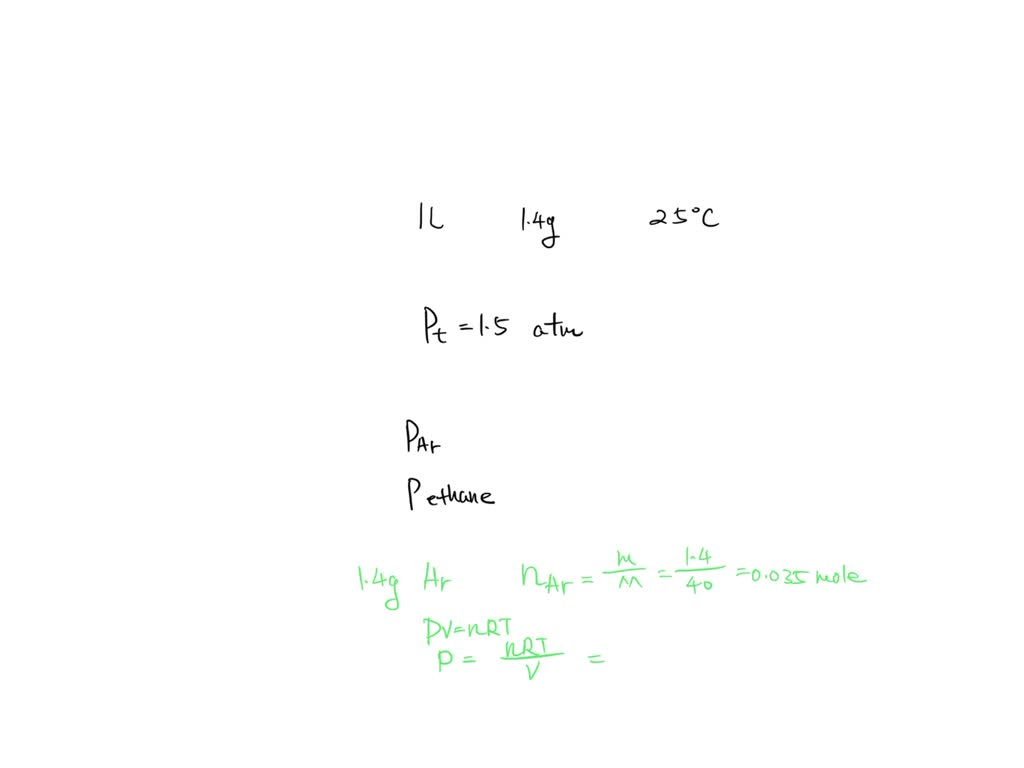 1L 1.4g 25°C
Pt = 1.5 atm
PAr
Pethane
1.4g Ar nAr = m/M = 1.4/40 = 0.035 mole
PV=nRT
P = nRT/V =